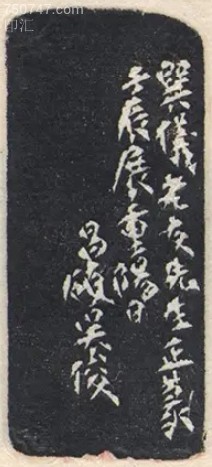 巽儀老友先生正篆
壬辰展重陽日
昌碩吳俊
780747.com
印汇